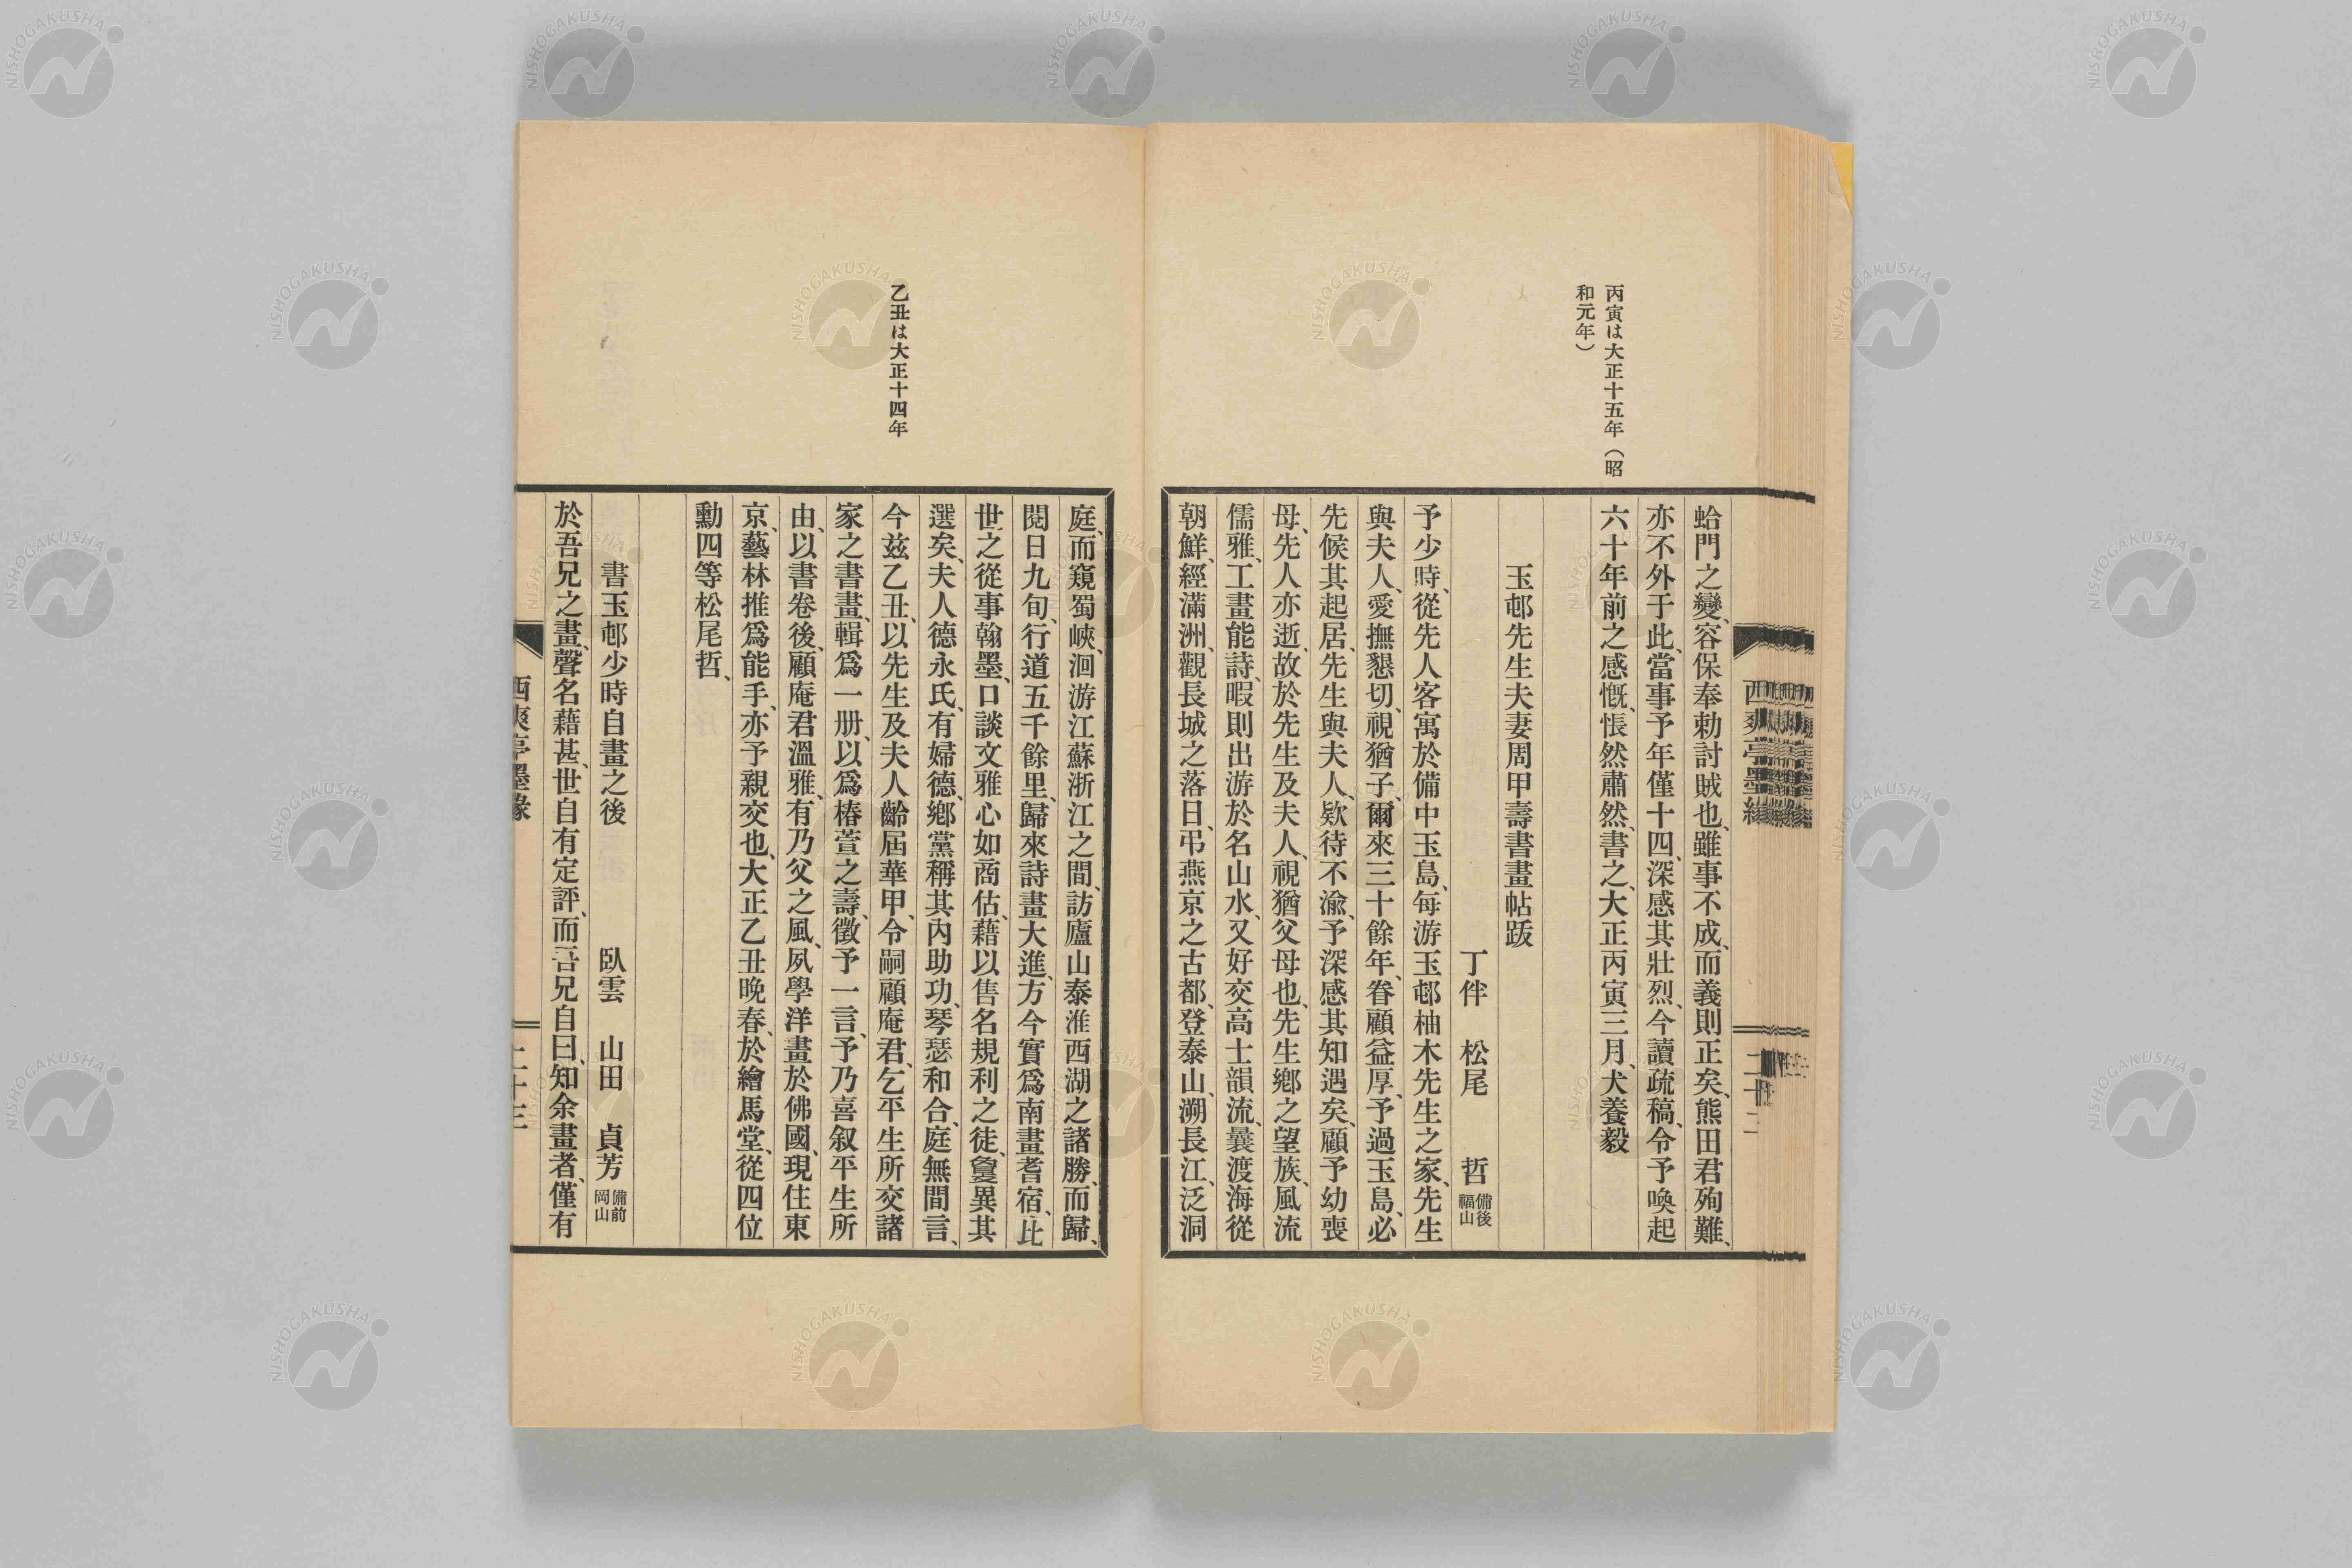 丙寅は大正十五年（昭
和元年）
蛤門之變、容保奉勅討賊也、雖事不成、而義則正矣、熊田君殉難、
亦不外于此、當事予年僅十四、深感其壯烈、今讀疏稿、令予喚起
六十年前之感慨、悵然肅然、書之、大正丙寅三月、犬養毅
玉邨先生夫妻周甲壽書畫帖跋
丁伴 松尾 哲 備後福山
予少時、從先人客寓於備中玉島、每游玉邨柚木先生之家、先生
與夫人、愛撫懇切、視猶子、爾來三十餘年、眷顧益厚、予過玉島、必
先候其起居、先生與夫人、欵待不渝、予深感其知遇矣、顧予幼喪
母、先人亦逝、故於先生及夫人、視猶父母也、先生鄉之望族、風流
儒雅、工畫能詩、暇則出游於名山水、又好交高士韻流、曩渡海從
朝鮮、經滿洲、觀長城之落日、弔燕京之古都、登泰山、溯長江、泛洞
西爽亭墨緣
乙丑は大正十四年
庭、而窺蜀峽、洄游江蘇浙江之間、訪廬山泰淮西湖之諸勝、而歸、
閱日九旬、行道五千餘里、歸來詩畫大進、方今實爲南畫耆宿、比
世之從事翰墨、口談文雅心如商估、藉以售名規利之徒、敻異其
選矣、夫人德永氏、有婦德、鄉黨稱其內助功、琴瑟和合、庭無間言、
今玆乙丑、以先生及夫人齡屆華甲、令嗣顧庵君、乞平生所交諸
家之書畫、輯爲一册、以爲椿萱之壽、徵予一言、予乃喜叙平生所
由、以書卷後、顧庵君溫雅、有乃父之風、夙學洋畫於佛國、現住東
京、藝林推爲能手、亦予親交也、大正乙丑晚春、於繪馬堂、從四位
勳四等松尾哲、
書玉邨少時自畫之後
臥雲 山田 貞芳 備前岡山
於吾兄之畫、聲名藉甚、世自有定評、而吾兄自曰、知余畫者、僅有
西爽亭墨緣
二十三